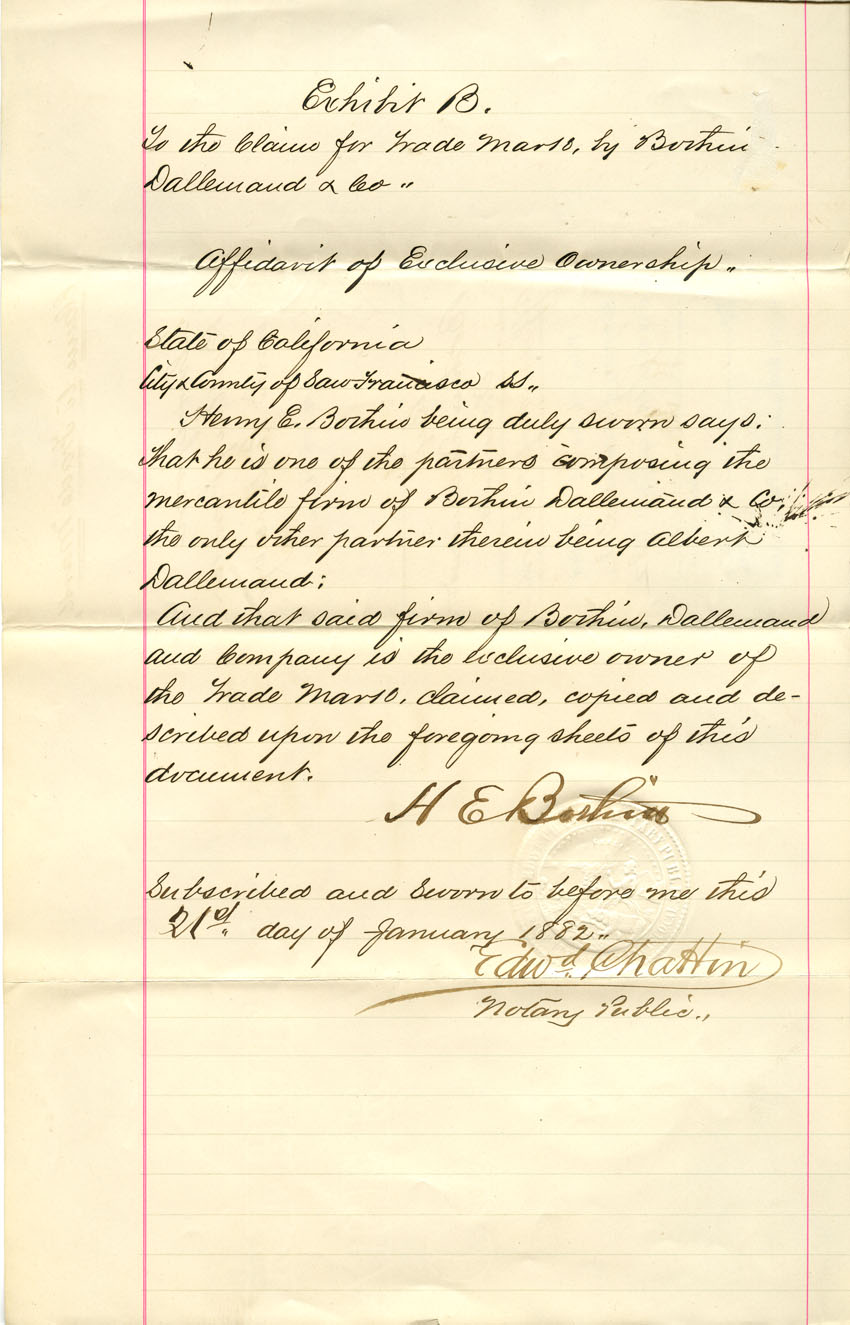 Exhibit B.
To the Claim for Trade Mark, by Bothin
Dallemand & Co "
Affidavit of Exclusive Ownership "
State of California
City & County of San Francisco SS "
Henry E. Bothin being duly sworn says;
that he is one of the partners composing the
mercantile firm of Bothin Dallemand & Co,
the only other partner therein being Albert
Dallemand;
And that said firm of Bothin, Dallemand
and Company is the exclusive owner of
the Trade Mark, claimed, copied and de-
scribed upon the foregoing sheets of this
document.
H E Bothin
Subscribed and Sworn to before me this
21st day of January 1882 "
Edwd Chattin
Notary Public "